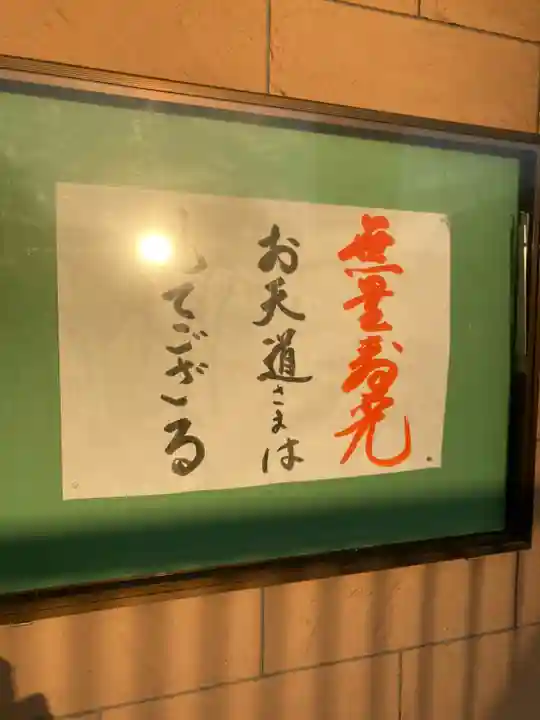 無量寿光
お天道さまは
してござる